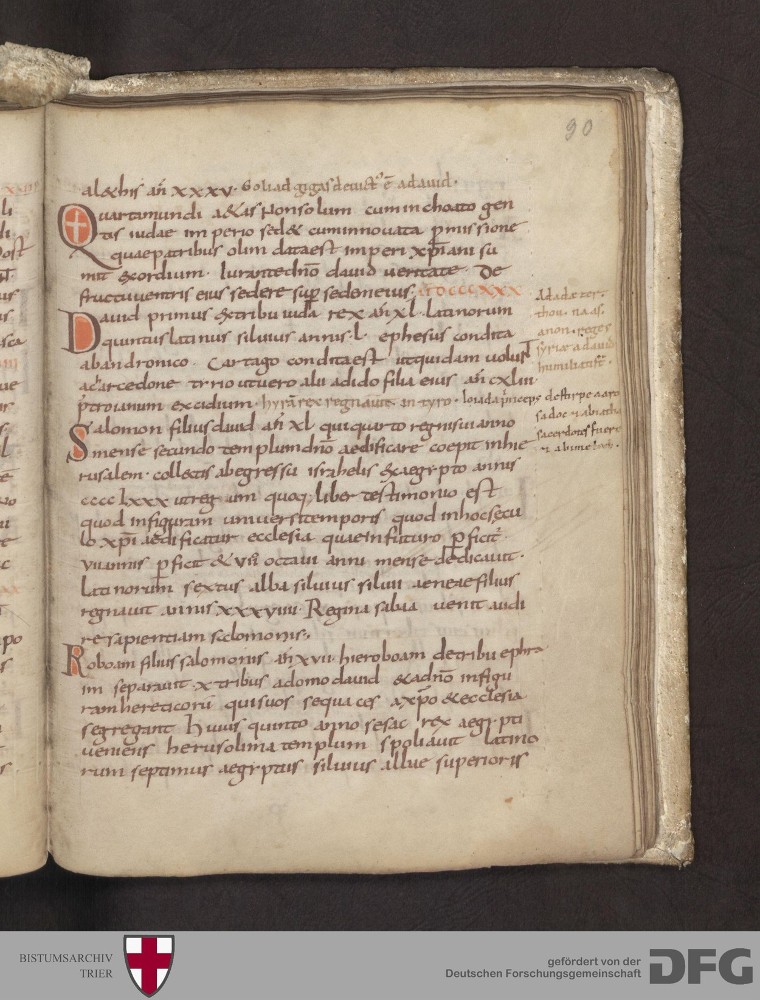 90
al&his añ xxxv· Goliad gigas deuict' ē a dauid·
Quartamundi a&as Non solum cum inchoato gen
tis iudae imperio sed& cum innouata pmissione
quae patribus olim data est imperi xp̄iani su
mit &cordium· Iurante dn̄o dauid ueritate· De
fructu uentris eius sedere sup sedem eius·
Dauid primus &tribu iuda rex añ xl· latinorum
quintus latinus siluius annis l· ephesus condita
ab andronico· Cartago condita est ut quidam uolunt
acarcedone tyrio ut uero alii adido filia eius añ cxliii
p troianum excidium· hyrā rex regnauit in tyro· Ioiada princeps de stirpe aaro
Salomon filius dauid añ xl qui quarto regni sui anno
mense secundo templum dn̄o aedificare coepit inhie
rusalem· collectis abegressu israhelis &aegypto annis
cccc lxxx ut reg um quoq; liber testimonio est
quod infiguram uniuersi temporis quod inhoc sęcu
lo xp̄i aedificatur ecclesia quae in futuro pficit'
vii annis pficit & vii octaui anni mense dedicauit·
Latinorum sextus alba siluius siluii aeneae filius
regnauit annis xxxviiii· Regina saba uenit audi
re sapientiam salomonis·,
Roboam filius salomonis añ xvii· hieroboam de tribu ephra
im separauit x tribus adomo dauid &adn̄o infigu
ram hereticorū qui suos sequaces a xp̄o &ecclesia
segregant Huius quinto anno sesac rex aegypti
ueniens hierusolima templum spoliauit latino
rum septimus aegyptus siluius albae superioris
Adadezer
anon· reges
syriae a dauid
humiliati sṫ·
sadoc & abiatha
sacerdotes fuere
BISTUMSARCHIV
TRIER
gefördert von der
Deutschen Forschungsgemeinschaft
DFG